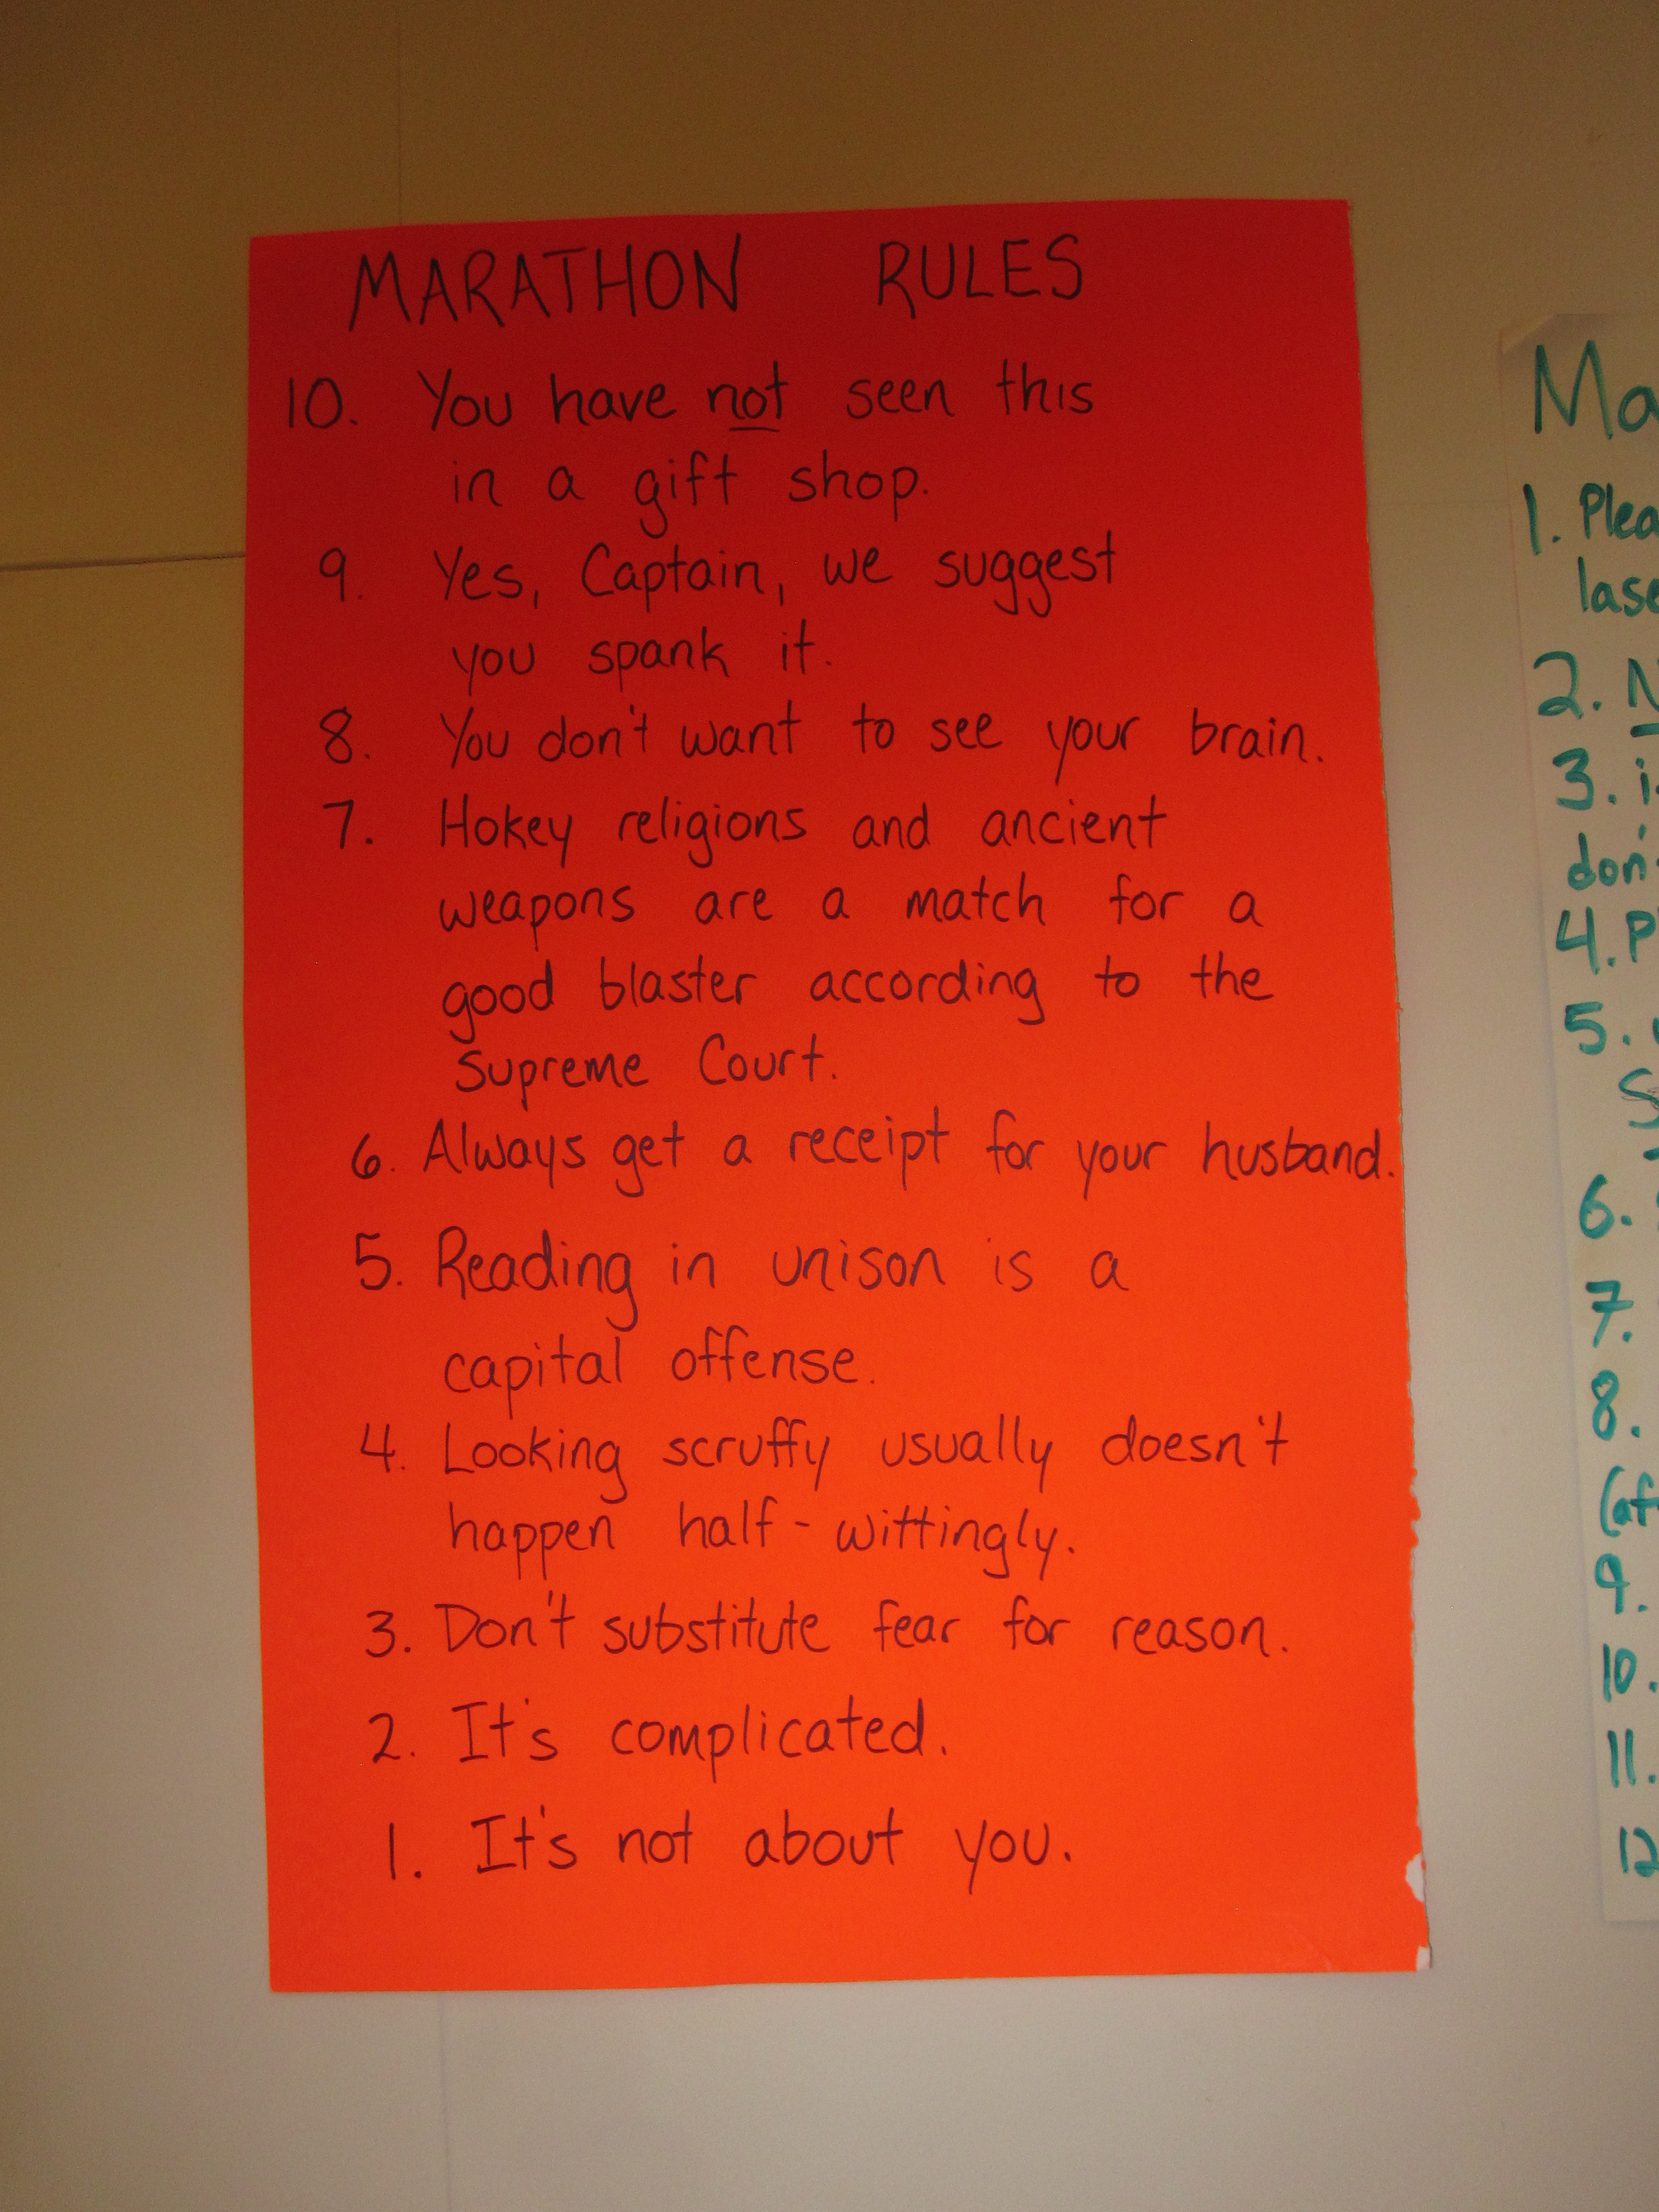 MARATHON RULES
10. You have not seen this
in a gift shop.
9. Yes, Captain, we suggest
you spank it.
8. You don't want to see your brain.
7. Hokey religions and ancient
weapons are a match for a
good blaster according to the
Supreme Court.
6. Always get a receipt for your husband.
5. Reading in unison is a
capital offense.
4. Looking scruffy usually doesn't
happen half-wittingly.
3. Don't substitute fear for reason.
2. It's complicated.
1. It's not about you.
Ma
1. Plea
lase
2. N
3. i
don'
4. P
5.
S
6.
7.
8.
(af
9.
10.
11.
12